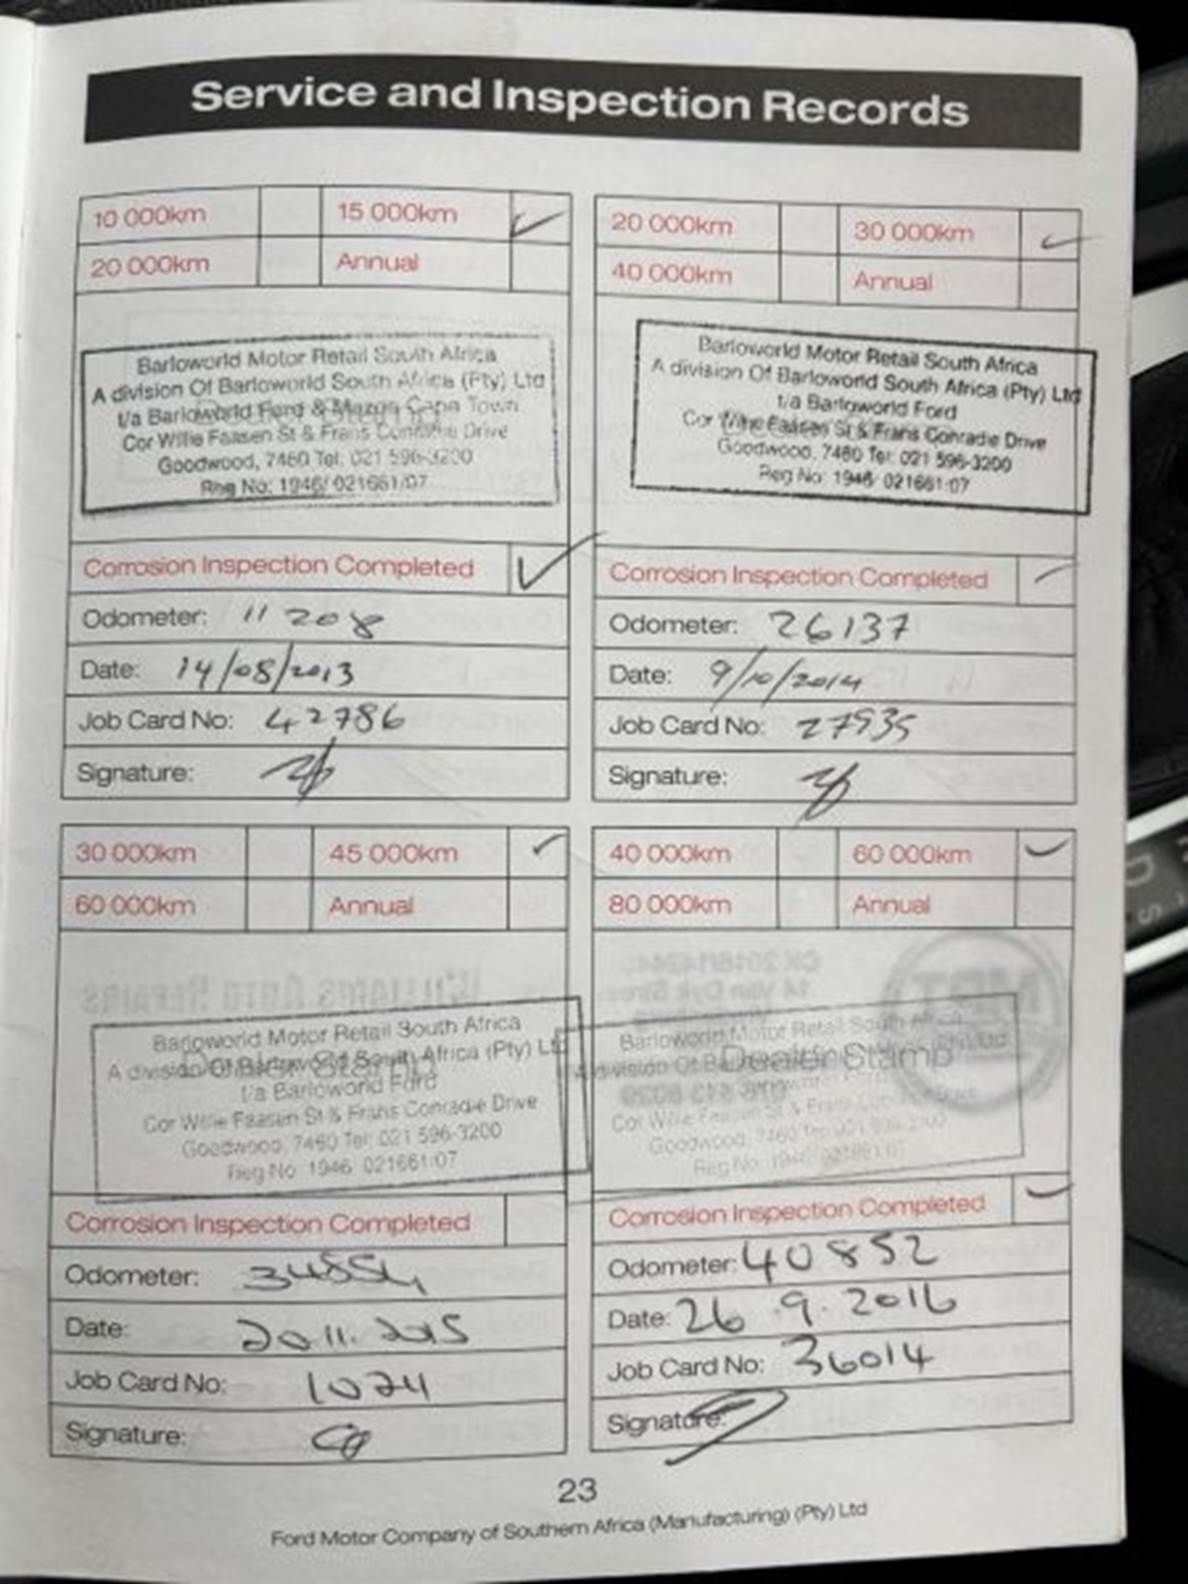 Service and Inspection Records
10 000km 15 000km ✓
20 000km Annual
Barloworld Motor Retail South Africa
A division Of Barloworld South Africa (Pty) Ltd
t/a Barloworld Ford & Mazda Cape Town
Cor Willie Faasen St & Frans Conradie Drive
Goodwood, 7460 Tel: 021 596-3200
Reg No: 1946/ 021661/07
Corrosion Inspection Completed ✓
Odometer: 11 208
Date: 14/08/2013
Job Card No: 42786
Signature:
20 000km 30 000km ✓
40 000km Annual
Barloworld Motor Retail South Africa
A division Of Barloworld South Africa (Pty) Ltd
t/a Barloworld Ford
Cor Willie Faasen St & Frans Conradie Drive
Goodwood, 7460 Tel: 021 596-3200
Reg No: 1946/ 021661/07
Corrosion Inspection Completed
Odometer: 26137
Date: 9/10/2014
Job Card No: 27935
Signature:
30 000km 45 000km ✓
60 000km Annual
Barloworld Motor Retail South Africa
A division Of Barloworld South Africa (Pty) Ltd
t/a Barloworld Ford
Cor Willie Faasen St & Frans Conradie Drive
Goodwood, 7460 Tel: 021 596-3200
Reg No 1946 021661/07
Corrosion Inspection Completed
Odometer:
Date: 20.11.2015
Job Card No: 1024
Signature:
40 000km 60 000km ✓
80 000km Annual
Barloworld Motor Retail South Africa
Dealer Stamp
Cor Willie Faasen St & Frans
Goodwood, 7460
Reg No: 1946/ 021661/07
Corrosion Inspection Completed ✓
Odometer: 40852
Date: 26.9.2016
Job Card No: 36014
Signature:
23
Ford Motor Company of Southern Africa (Manufacturing) (Pty) Ltd